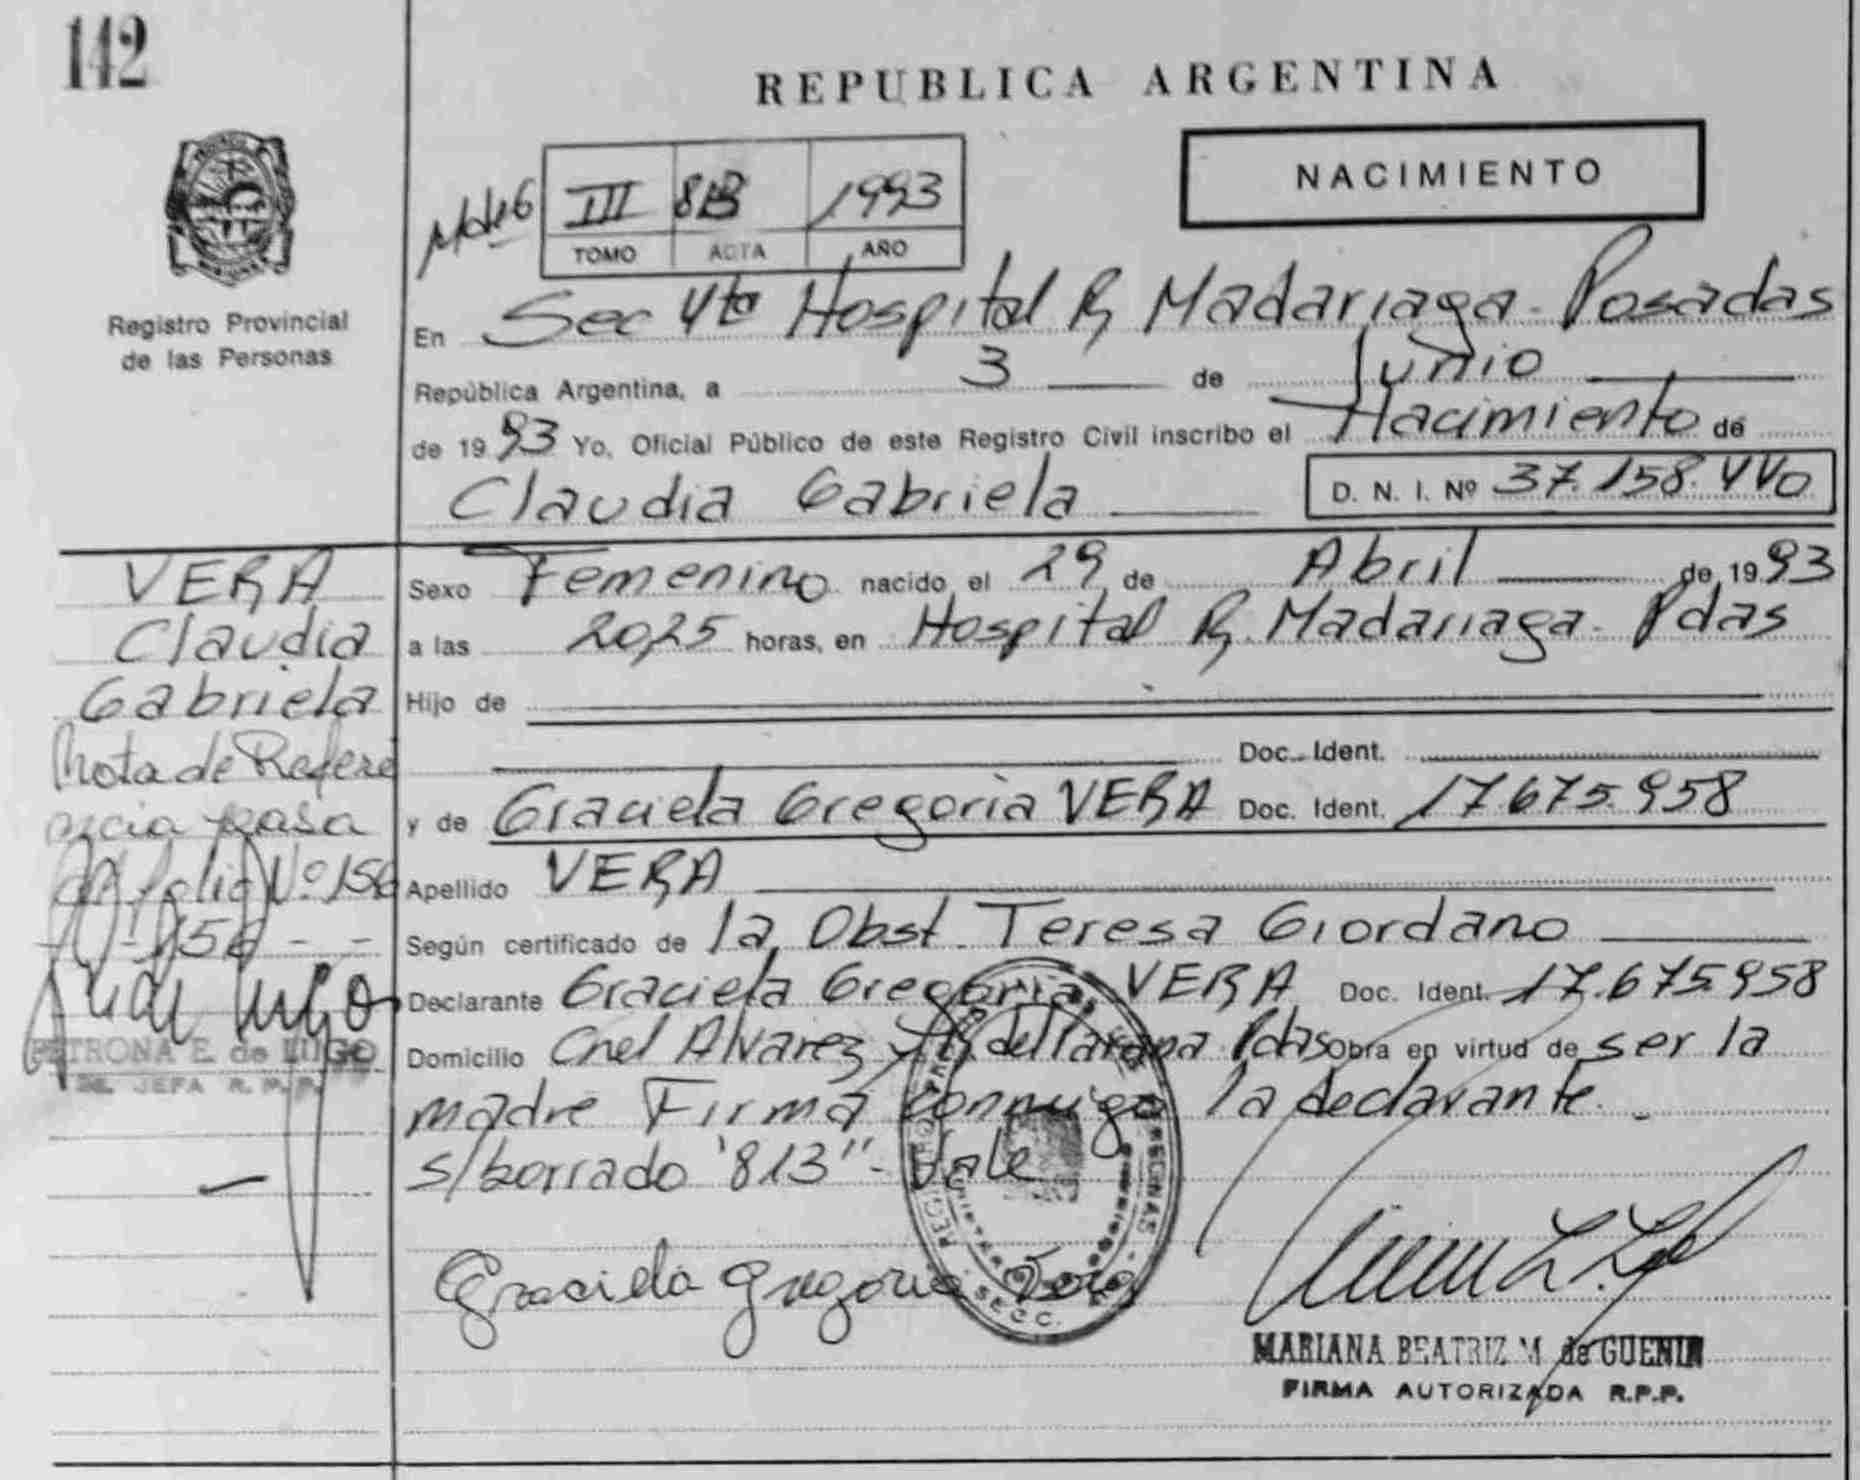 142
REPUBLICA ARGENTINA
NACIMIENTO
III 813 1993
TOMO ACTA AÑO
Registro Provincial
de las Personas
En Sec 4ta Hospital R, Madariaga - Posadas
República Argentina, a 3 de Junio
de 1993 Yo, Oficial Público de este Registro Civil inscribo el Nacimiento de
Claudia Gabriela
D. N. I. Nº 37.158.440
VERA
Claudia
Gabriela
Nota de Refere
ncia pasa
al folio Nº 156
- Nº 156 - -
PETRONA E. de LUGO
JEFA R. P. P.
Sexo Femenino nacido el 29 de Abril de 1993
a las 20,25 horas, en Hospital R, Madariaga - Pdas
Hijo de
Doc. Ident.
y de Graciela Gregoria VERA Doc. Ident. 17.675.958
Apellido VERA
Según certificado de la Obst. Teresa Giordano
Declarante Graciela Gregoria VERA Doc. Ident. 17.675.958
Domicilio Cnel Alvarez y del Parana Pdas Obra en virtud de ser la
madre Firma conmigo la declarante.
s/borrado "813" - Vale
Graciela Gregoria Vera
MARIANA BEATRIZ M. de GUENIN
FIRMA AUTORIZADA R.P.P.